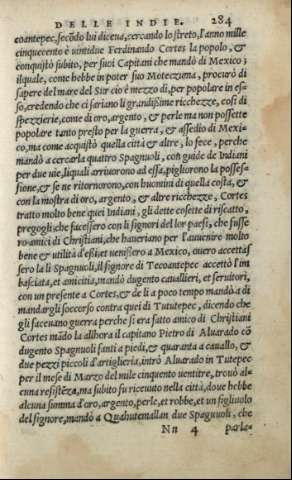 DELLE INDIE. 284
coantepec, secõdo lui diceua, cercando lo streto, l'anno mille
cinquecento è uintidue Ferdinando Cortes la popolo, &
conquistò subito, per suoi Capitani che mandò di Mexico;
ilquale, come hebbe in poter suo Moteczuma, procurò di
sapere del mare del Sur cio è mezzo dì, per popolare in es-
so, credendo che ci sariano li grandißime ricchezze, cosi di
spezzierie, come di oro, argento, & perle ma non possette
popolare tanto presto per la guerra, & assedio di Mexi-
co, ma come acquistò quella città & altre, lo fece, perche
mandò a cercarla quattro Spagnuoli, con guide de Indiani
per due uie, liquali arriuorono ad essa, pigliorono la posses-
sione, & se ne ritornorono, con huomini di quella costa, &
con la mostra di oro, argento, & altre ricchezze, Cortes
trattò molto bene quei Indiani, gli dette cosette di riscatto,
pregogli che facessero con li signori del lor paesi, che fusse
ro amici di Christiani, che haueriano per l'auuenire molto
bene & utilità d'esi, et uenissero a Mexico, ouero accettas
sero la li Spagnuoli, il signore di Tecoantepec accettò l'im
basciata, et amicitia, mandò dugento cauallieri, et seruitori,
con un presente a Cortes, & de li a poco tempo mandò a di
mandargli soccorso contra quei di Tututepec, dicendo che
gli faceuano guerra perche si era fatto amico di Christiani
Cortes mãdo la allhora il capitano Pietro di Aluarado cõ
dugento Spagnuoli fanti a piedi, & quaranta a cauallo, &
due pezzi piccoli d'artiglieria, intrò Aluarado in Tutepec
per il mese di Marzo del mille cinquento uentitre, trouò al-
cuna resistẽza, ma subito fu riceuuto nella città, doue hebbe
alcuna somma d'oro, argento, perle, et robbe, et un figliuolo
del signore, mandò a Quahutemallan due Spagnuoli, che
Nn 4 parla-